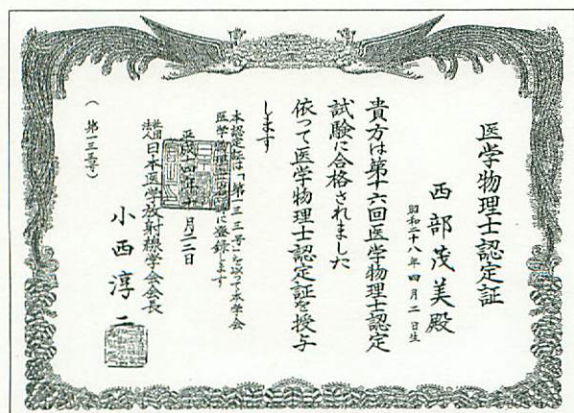 医学物理士認定証
西部茂美殿
昭和二十八年四月二日生
貴方は第十六回医学物理士認定
試験に合格されました
依って医学物理士認定証を授与
します
本認定証は「第一三三号」を以って本学会
医学物理士
に登録します
平成十四年十
月二日
日本医学放射線学会会長
小西淳二